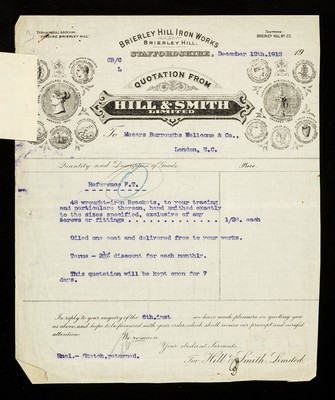 BRIERLEY HILL IRON WORKS
BRIERLEY HILL,
STAFFORDSHIRE,
December 12th.1912
19
CB/C
L
QUOTATION FROM
HILL & SMITH
LIMITED
To Messrs Burroughs Wellcome & Co.,
London, E.C.
Quantity and Description of Goods.
Price.
Reference F.T.
48 wrought-iron Brackets, to your tracing
and particulars thereon, hand smithed exactly
to the sizes specified, exclusive of any
screws or fittings . . . . . . . . . . 1/2d. each
Oiled one coat and delivered free to your works.
Terms - 2½% discount for cash monthly.
This quotation will be kept open for 7
days.
In reply to your enquiry of the 6th.inst we have much pleasure in quoting you
as above, and hope to be favored with your order, which shall receive our prompt and careful
attention.
We remain
Your obedient Servants
For Hill & Smith, Limited.
Encl.- Sketch, returned.